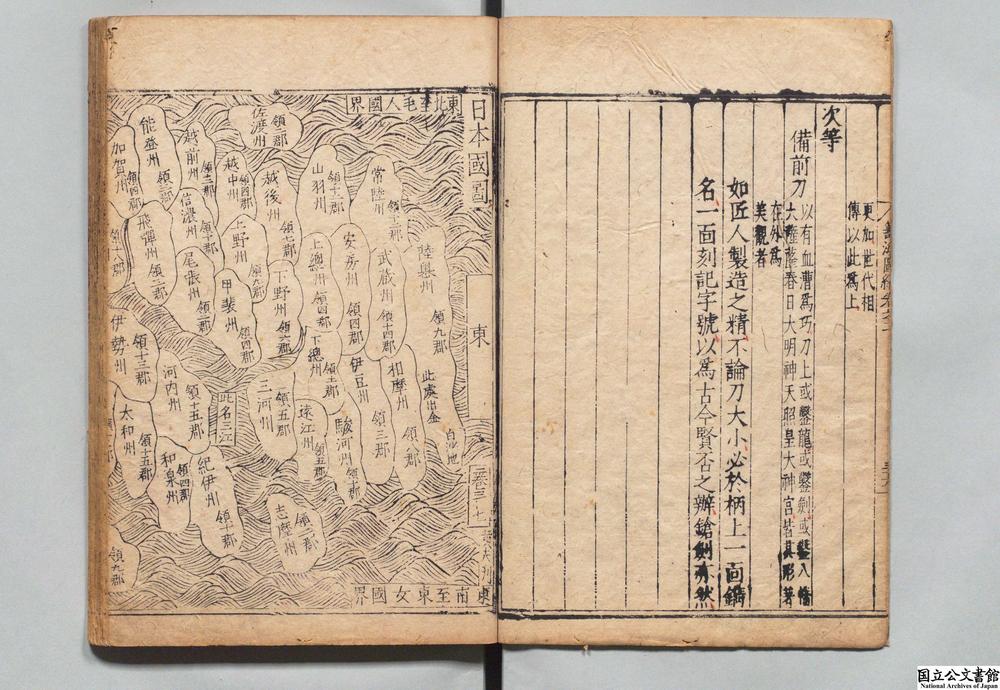 更加世代相
傳以此爲上
次等
備前刀
以有血漕爲巧刀上或鑿龍或鑿劍或鑿八幡
大菩薩春日大明神天照皇大神宮皆其形著
在外爲
美觀者
如匠人製造之精不論刀大小必於柄上一面鐫
名一面刻記字號以爲古今賢否之辦鎗劍亦然
日本國圖
東
東北至毛人國界
東南至東女國界
陸奧州
領九郡
此處出金
常陸州
武蔵州
領十四郡
相摩州
領八郡
山羽州
領十二郡
安房州
領四郡
伊豆州
領三郡
駿河州
上總州
領四郡
下總州
遠江州
佐渡州
領三郡
越後州
領七郡
下野州
領六郡
三河州
領五郡
此名三江
志摩州
領二郡
越中州
領四郡
上野州
領九郡
甲裴州
領四郡
越前州
領三郡
信濃州
領十郡
尾張州
領二郡
河内州
領十五郡
紀伊州
領十郡
和泉州
領四郡
能登州
領三郡
飛彈州
領二郡
加賀州
領四郡
領十八郡
伊勢州
領十三郡
太和州
領十五郡
領九郡
国立公文書館
National Archives of Japan